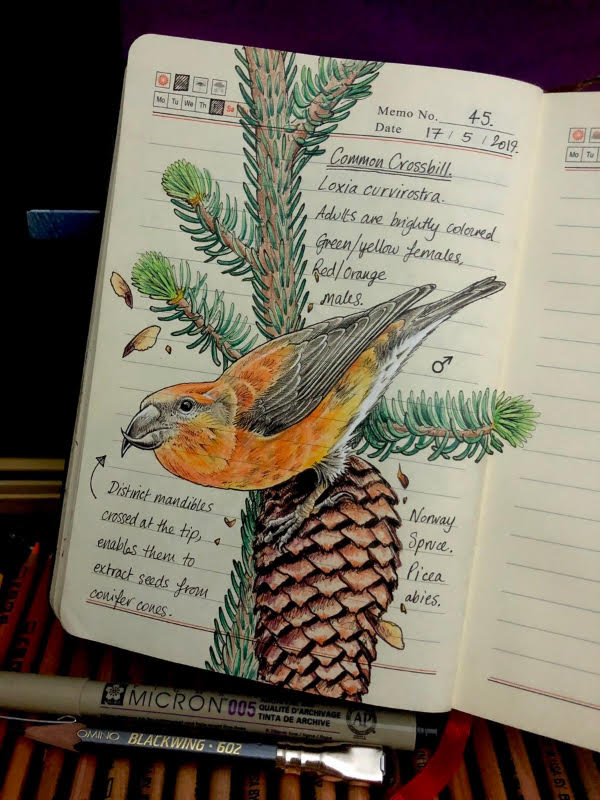 Mo Tu We Th Sa
Memo No. 45.
Date 17 / 5 / 2019.
Common Crossbill.
Loxia curvirostra.
Adults are brightly coloured
Green/yellow females,
Red/Orange
males.
♂
Distinct mandibles
crossed at the tip,
enables them to
extract seeds from
conifer cones.
Norway
Spruce.
Picea
abies.
Mo Tu
MICRON 005
QUALITÉ D'ARCHIVAGE
TINTA DE ARCHIVE
AP
PALOMINO BLACKWING · 602